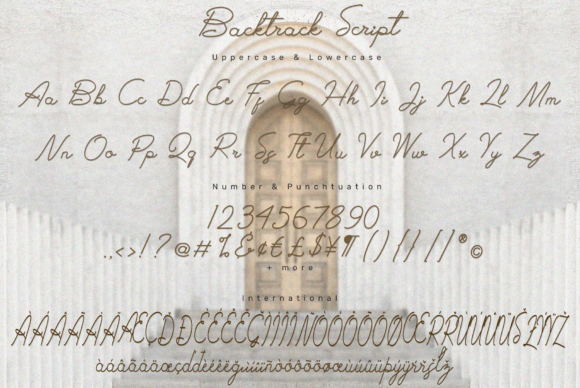 Backtrack Script
Uppercase & Lowercase
Aa Bb Cc Dd Ee Ff Gg Hh Ii Jj Kk Ll Mm
Nn Oo Pp Qq Rr Ss Tt Uu Vv Ww Xx Yy Zz
Number & Punchtuation
1234567890
.,<>!?@#%&¢€£$¥¶(){}[]®©
+ more
International